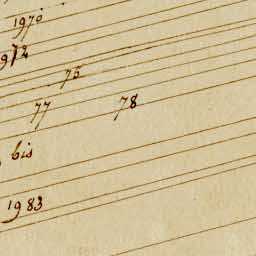 1970
972
75
77 78
bis
1983